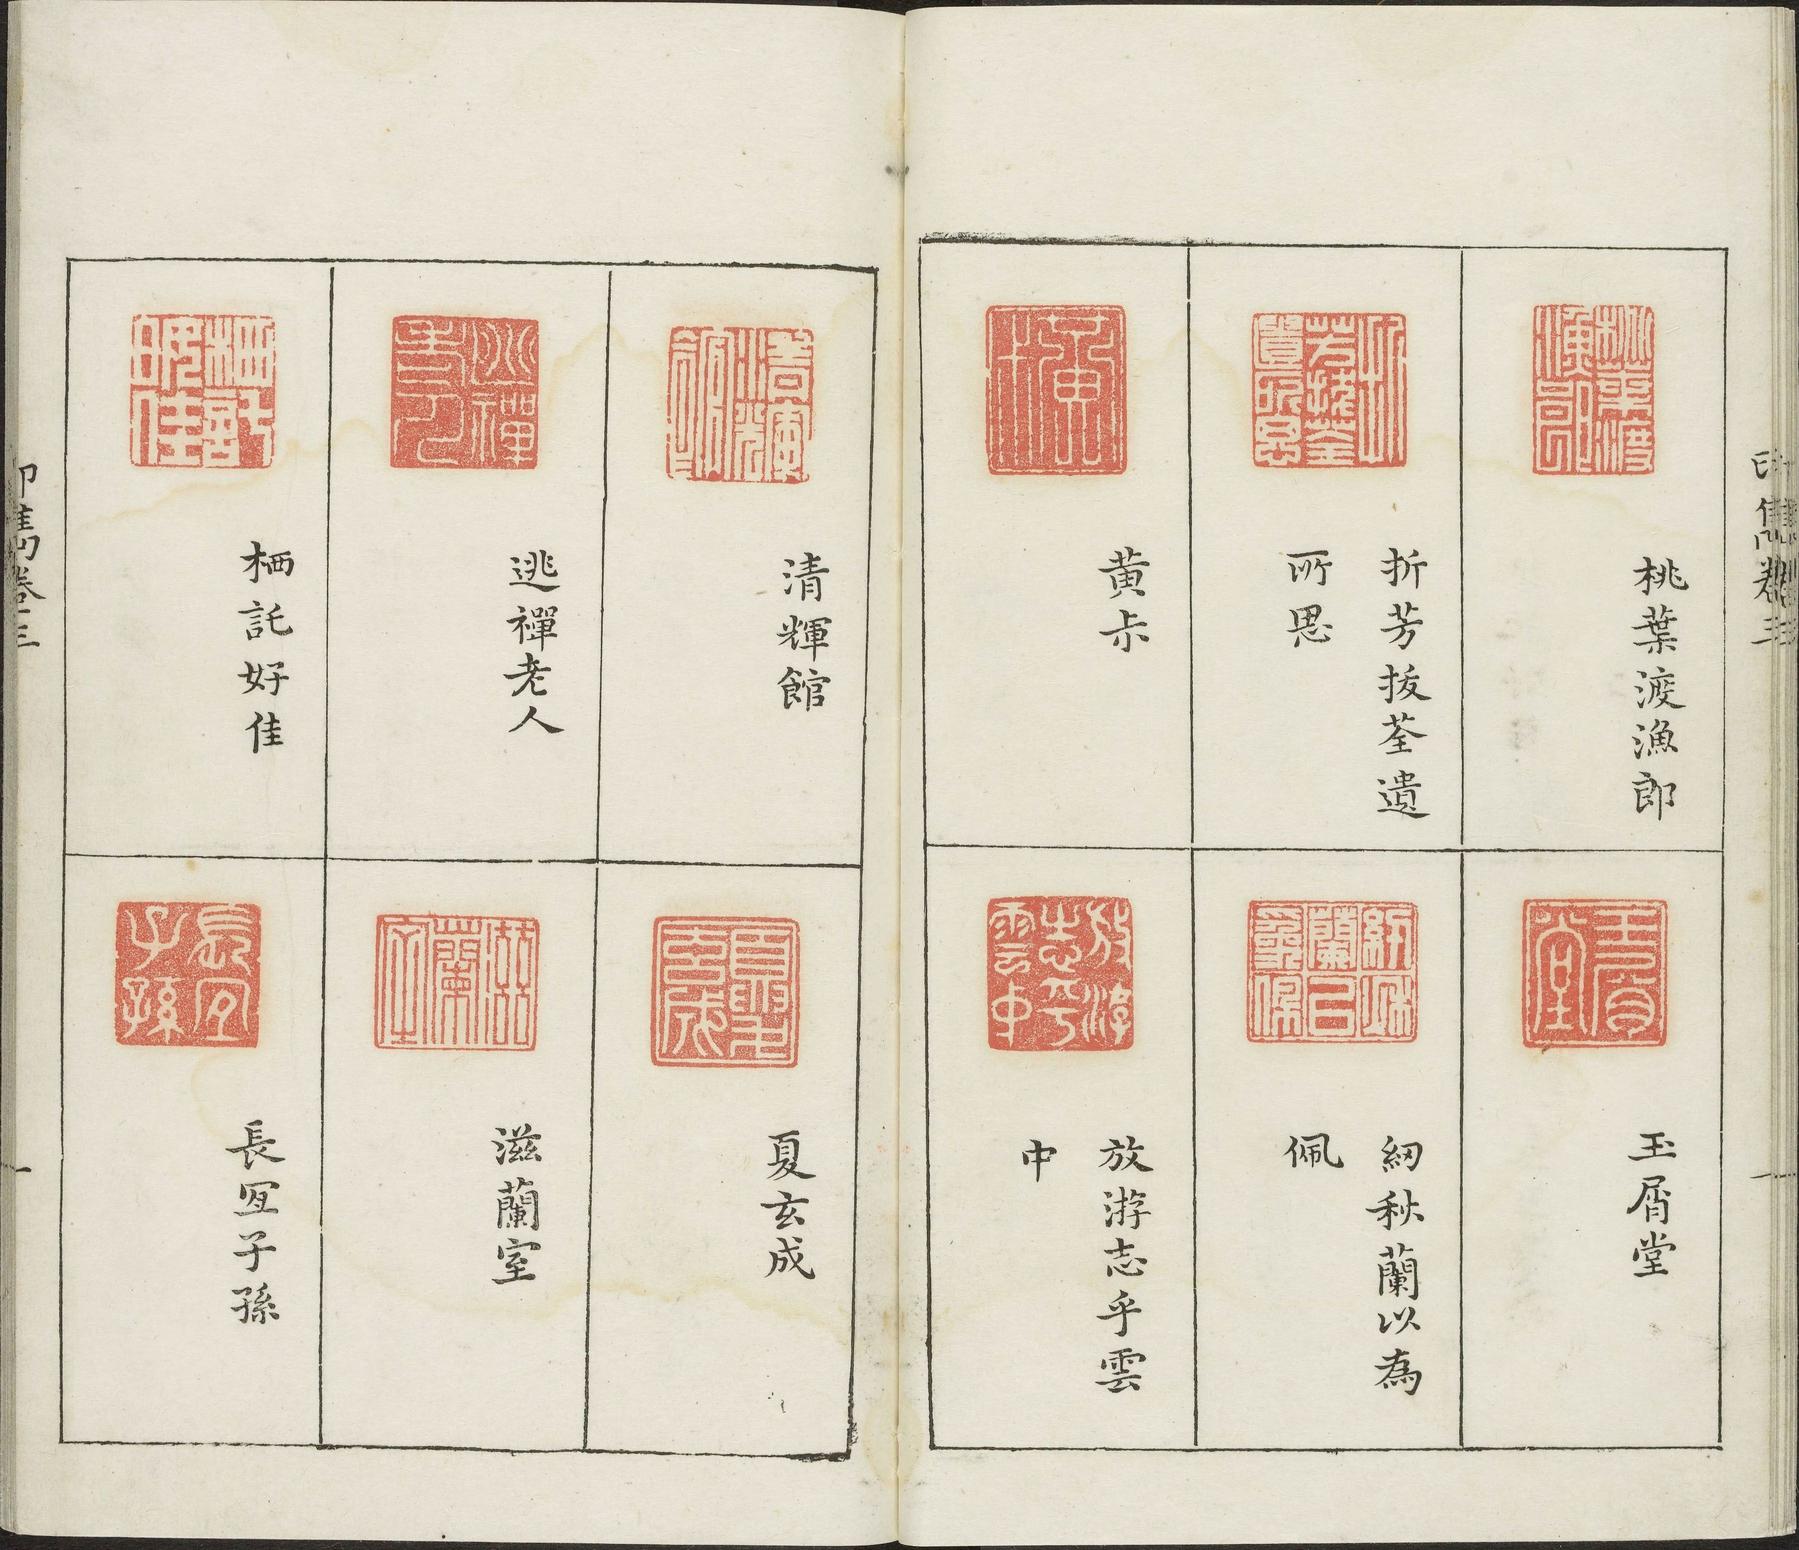 桃葉渡漁郎
折芳拔荃遺
所思
黄朩
玉屑堂
紉秋蘭以為
佩
放游志乎雲
中
清輝館
逃禪老人
栖託好佳
夏玄成
滋蘭室
長宜子孫
印雋卷三
一